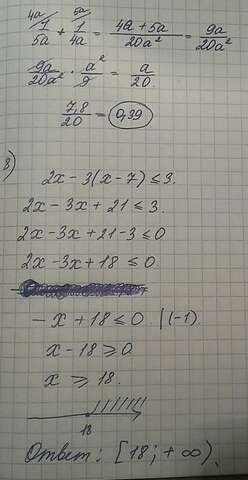 4a/ 1/5a + 5a/ 1/4a = (4a + 5a)/20a² = 9a/20a²
9a/20a² · a²/9 = a/20.
7,8/20 = 0,39
8)
2x - 3(x - 7) ≤ 3.
2x - 3x + 21 ≤ 3.
2x - 3x + 21 - 3 ≤ 0
2x - 3x + 18 ≤ 0.
- x + 18 ≤ 0. | (-1).
x - 18 ≥ 0.
x ≥ 18.
18
Ответ: [18; + ∞).